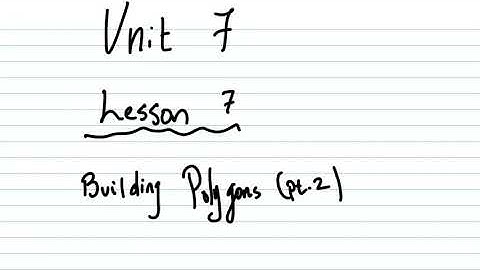 Unit 7
Lesson 7
Building Polygons (pt.2)